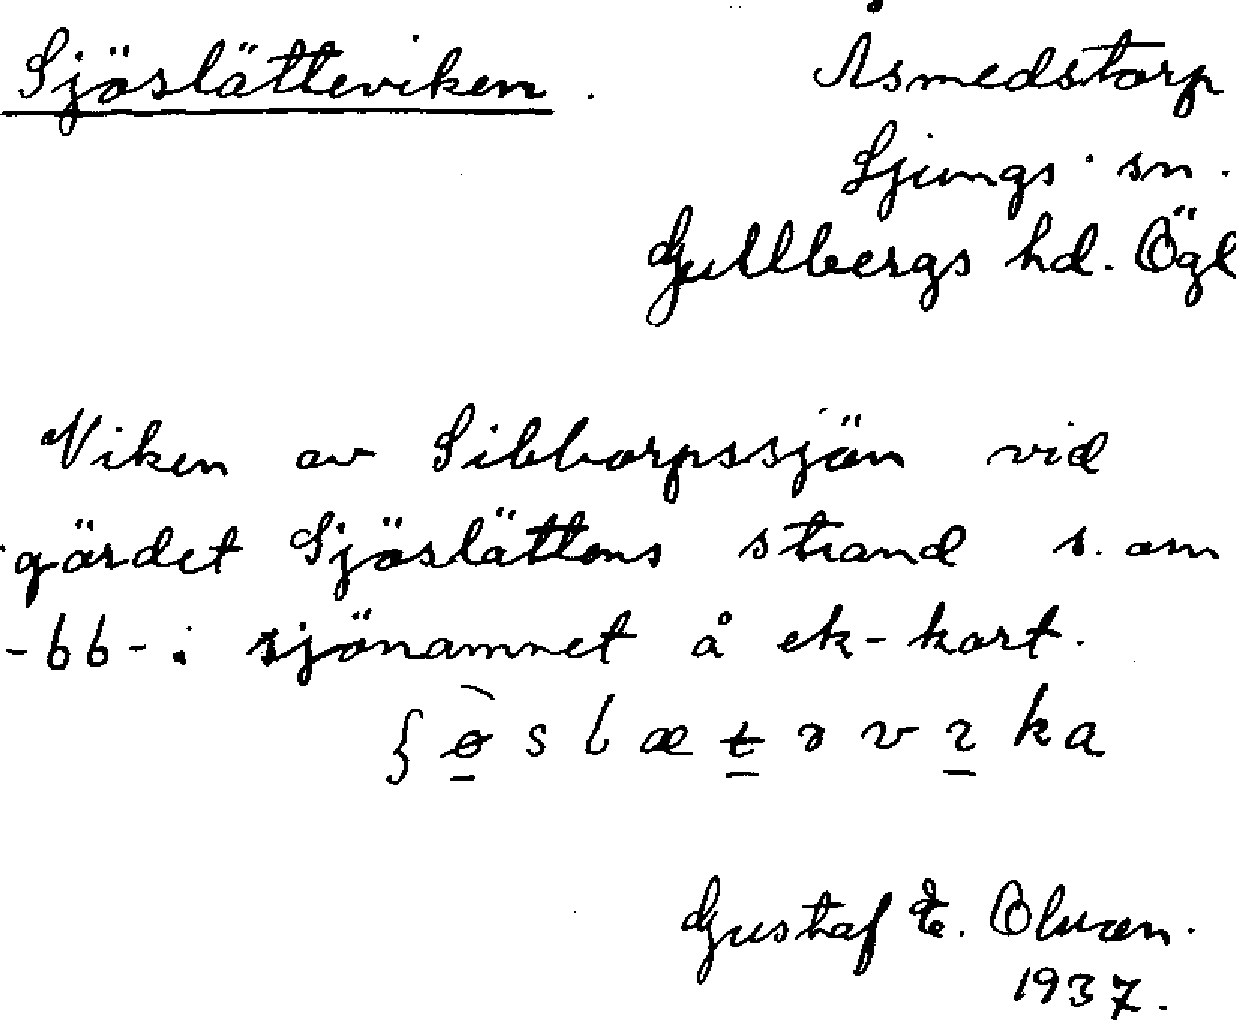 Sjöslätteviken. Åsmedstorp
Ljungs sn.
Gullbergs hd. Ögl
Viken av Sibborpssjön vid
gärdet Sjöslättens strand s. om
-bb- i sjönamnet å ek-kart.
Gustaf E. Olsson.
1937.